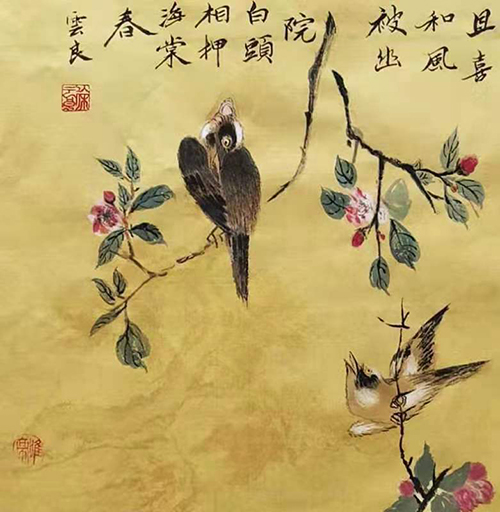 且喜
和風
被幽
院
白頭
相押
海棠
春
雲良